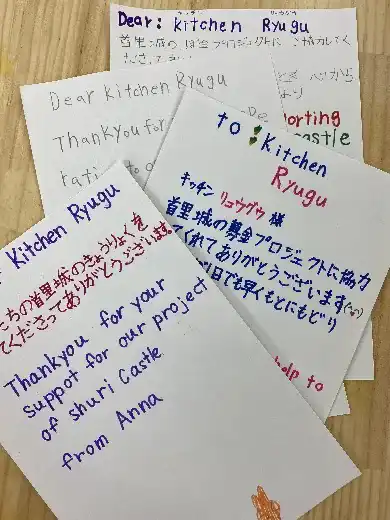 Dear: Kitchen Ryugu
首里城の
プロジェクトに
協力してく
ださ
から
より
orting
castle
Dear Kitchen Ryugu
Thankyou for
rati
to o
to Kitchen
Ryugu
キッチン リュウグウ 様
首里城の募金プロジェクトに協力
してくれてありがとうございます
日でも早くもとにもどり
help to
Kitchen Ryugu
ちの首里城のきょうりょくを
てくださってありがとうございます。
Thankyou for your
suppot for our project
of shuri Castle
from Anna